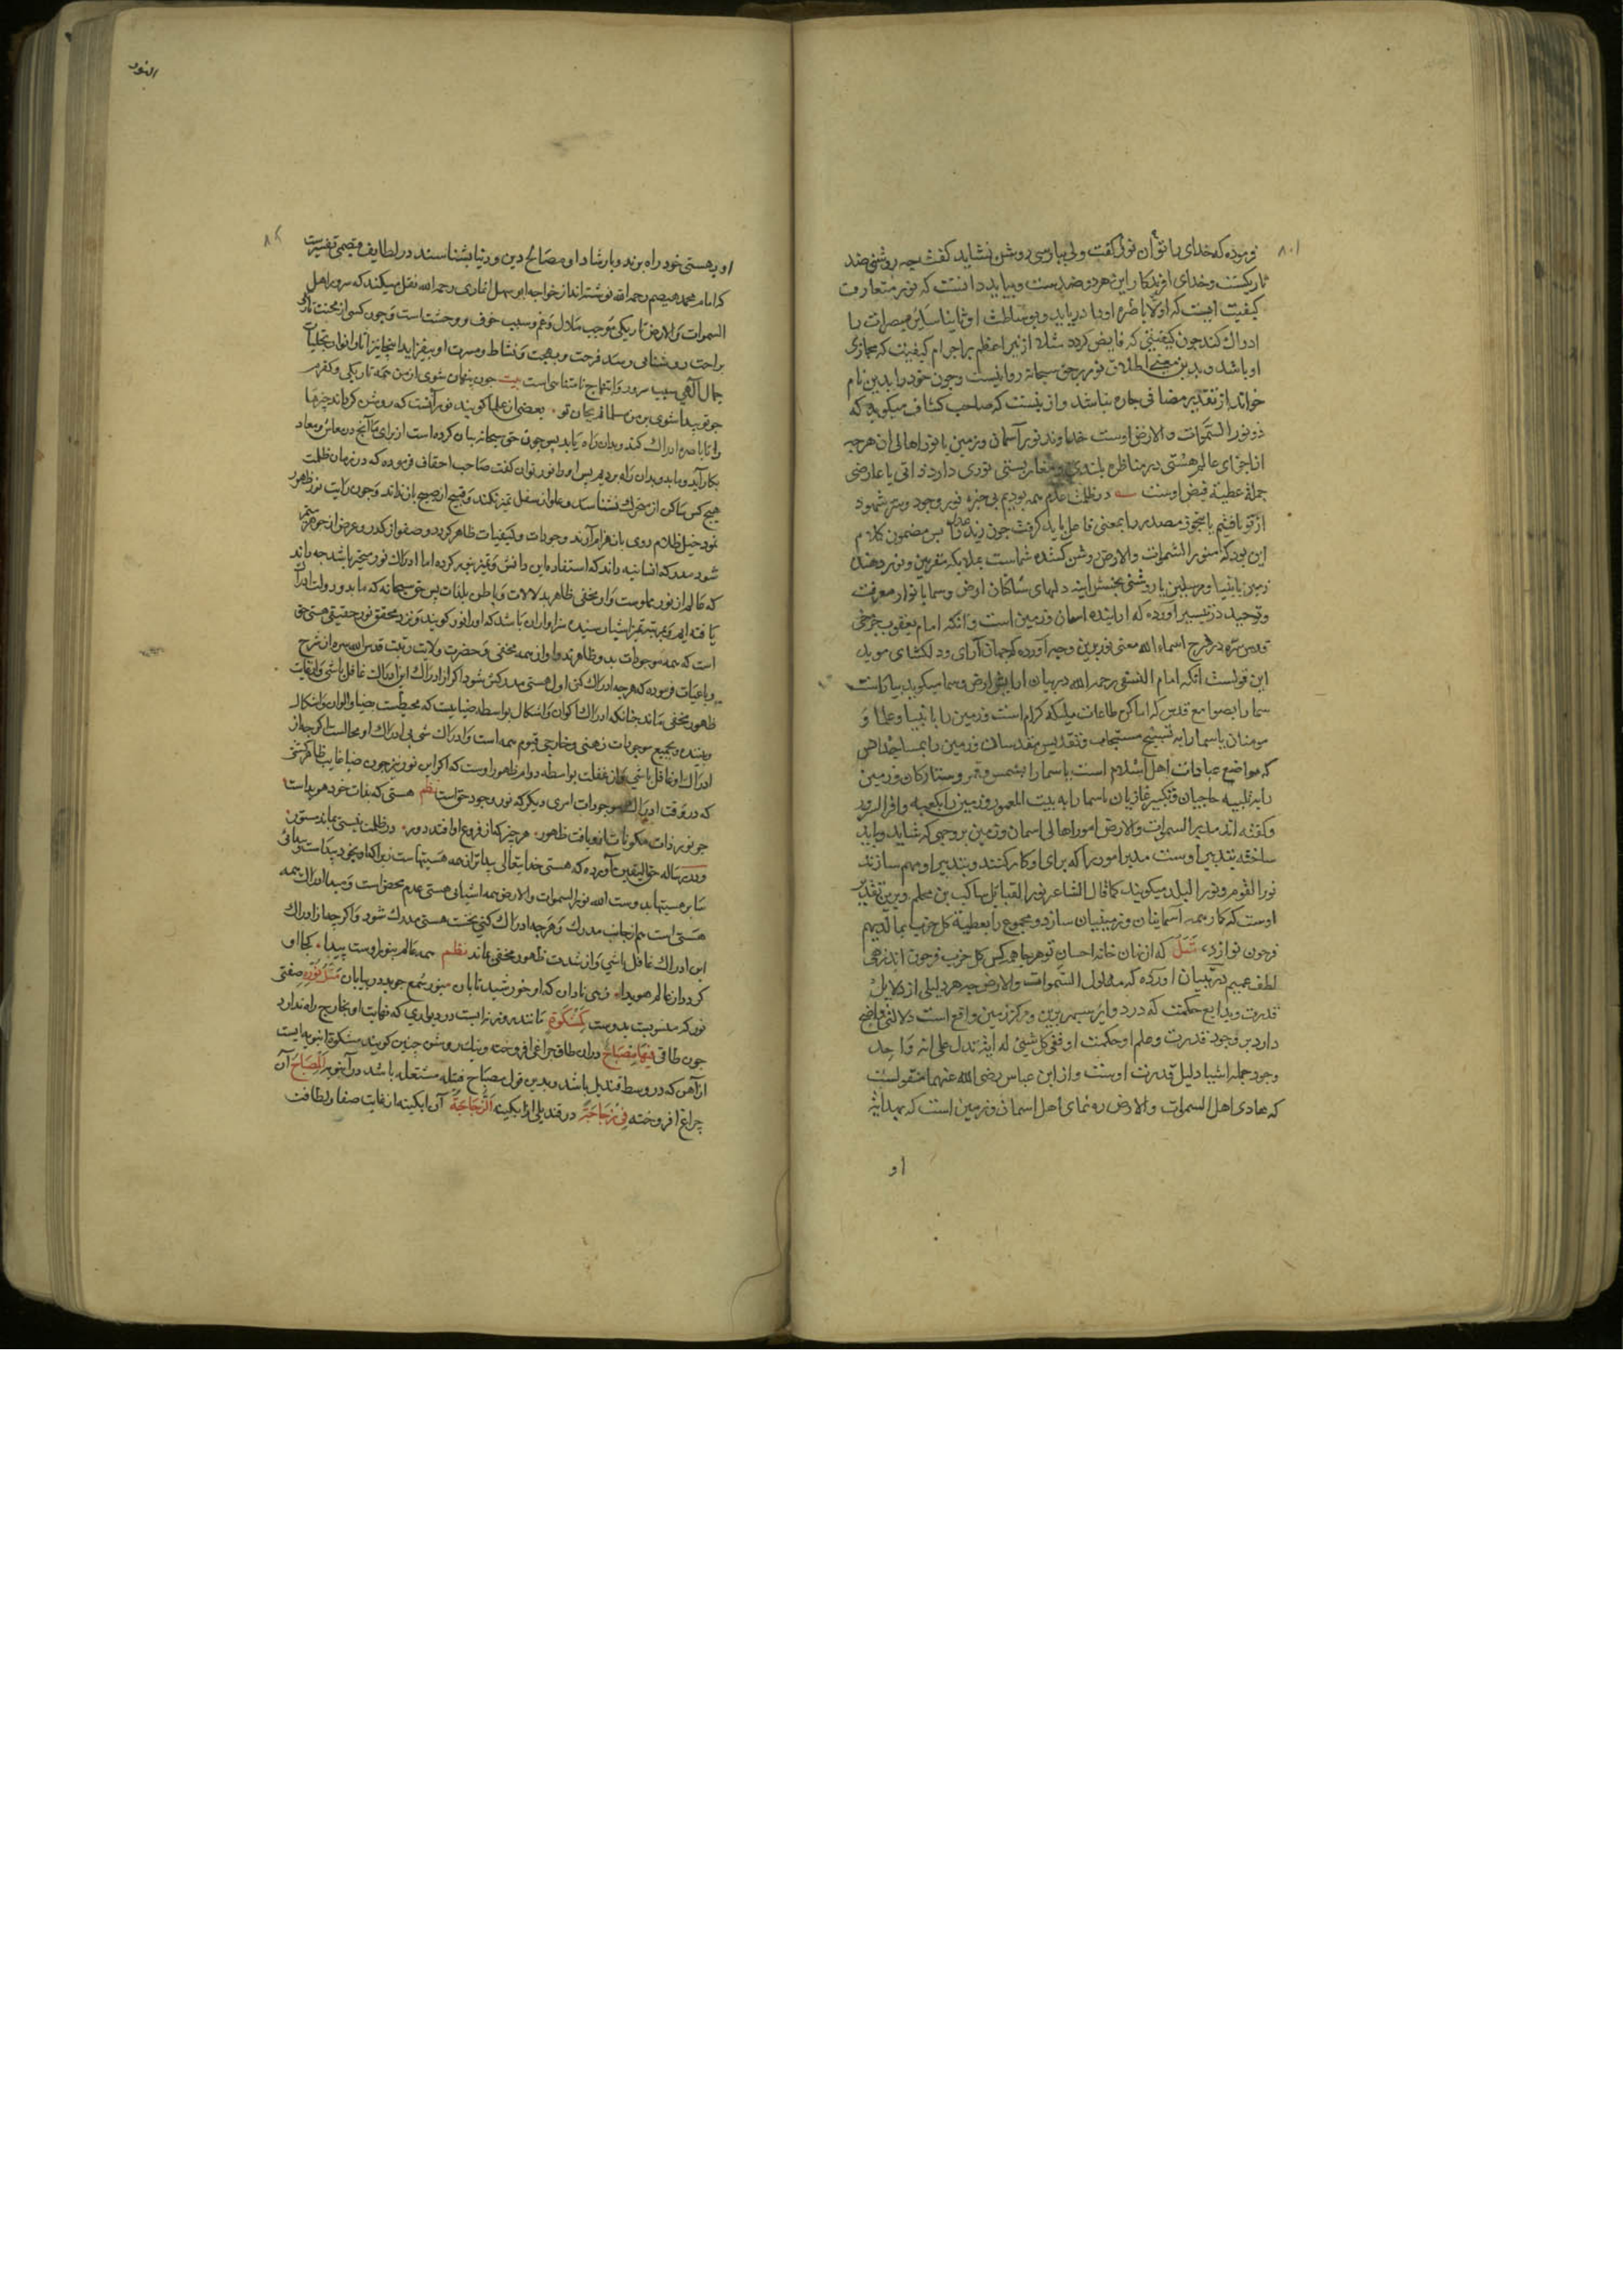 فرموده که خدای را توان نور گفت ولی پارسی روشن نشاید گفت چه روشنی ضد
تاریکیست و خدای افریدکار این هر دو ضدست و بباید دانست که نور متعارف
کیفیت ایست که اولا باطره اورا دریابد و بوساطت او ثانیا سایر مبصرات را
ادراک کند چون کیفیتی که فایض کردد مثلا از نیر اعظم بر اجرام کیفیت که محاذی
او باشد و بدین معنی اطلاق نور بر حق سبحانه روا نیست و چون خود را بدین نام
خواند از تقدیر مضافی چاره نباشد و ازینست که صاحب کشاف میکوید که
ذو نور السموات والارض اوست خداوند نور آسمان و زمین یا نور اهالی ان هرچه
از اجزای عالم هستی در مناظره بلندی و مغایر پستی نوری دارد ذاتی یا عارضی
جمله عطیه فیض اوست در ظلمت عدم همه بودیم بی خبر نور وجود و سر شهود
از تو یافتیم یا بتجوز مصدر را بمعنی فاعل باید کرفت چون زید عدل پس مضمون کلام
این بود که منور السموات والارض روشن کننده سماست بملایکه مقربین و نور دهنده
زمین بانبیا و مرسلین یا روشنی بخش اینه دلهای ساکنان ارض و سما بانوار معرفت
و توحید در تیسیر اورده که اراینده اسمان و زمین است و انکه امام یعقوب چرخی
قدس سره در شرح اسماء الله معنی نور برین وجه آورده که جهان آرای و دلکشای موید
این قولست آنکه امام النسفی رحمه الله در بیان ارایش ارض و سما میکوید بیاراست
سما را بصوامع قدس که اماکن طاعات ملیکه کرام است و زمین را بانبیا و علما و
مومنان یا سما را به تسبیح مسبحان و تقدیس مقدسان و زمین را بمساجد خاص
که مواضع عبادات اهل اسلام است یا سما را بشمس و قمر و ستارکان و زمین
را به تلبیه حاجیان و تکبیر غازیان یا سما را به بیت المعمور و زمین را بکعبه
و کفته اند مدبر السموات والارض امور اهالی اسمان و زمین بر وجهی که شاید و باید
ساخته تدبیر اوست مدبر امور را که برای او کار کنند و بتدبیر او مهم سازند
نور القوم و نور البلد میکویند کما قال الشاعر نور القبایل ساکب بن محلم و برین تقدیر
اوست که کار همه آسمانیان و زمینیان سازد و مجموع را بعطیة کل حزب بما لدیهم
فرحون نوازد که از خوان خانه احسان تو هرجا همه کس کل حزب فرحون اند زهی
لطف عمیم در تبیان اورده که مدلول السموات والارض چه هر دلیلی از دلایل
قدرت و بدایع حکمت که در دوایر سپهر برین و مرکز زمین واقع است دلالتی واضح
دارد بر وجود قدرت و علم او حکمت او ففی کل شیئ له آیة تدل علی انه واحد
وجود جمله اشیا دلیل قدرت اوست و از ابن عباس رضی الله عنهما منقولست
که هادی اهل السموات والارض رهنمای اهل اسمان و زمین است که بهدایة
او
النور
او بهستی خود راه برند و بارشاد او مصالح دین و دنیا بشناسند در لطایف قصصی تفسیریست
که امام محمد هیصم رحمه الله نوشته اند از خواجه ابو سهل انماری رحمه الله نقل میکند که سرور اهل
السموات والارض تاریکی موجب ملال و غم و سبب خوف و وحشت است و چون کسی از محنت تاریکی
براحت روشنائی رسد فرحت و بهجت و نشاط و مسرت او بیفزاید اینجا نیز آثار انوار تجلیات
جمال الهی سبب سرور و ابتهاج نامتناهی است بیت چون پنهان شوی از من همه تاریکی و کفرم
چو تو پیدا شوی بر من مسلمانم بجان تو بعضی از علما کویند نور آنست که روشن کرداند چیزها
را تا باصره ادراک کند و بدان راه یابد پس چون حق سبحانه بیان کرده است از برای ما آنچه در معاش و معاد
بکار آید و ما بدو بدان راه بردیم پس او را نور توان کفت صاحب احقاف فرموده که در زمان ظلمت
هیچ کس ساکن از متحرک نشناسد و علو از سفل تمیز نکند و قبیح از صبیح باز نداند و چون رایت نور ظهور
نمود خیل ظلام روی بانهزام آرند وجودات و کیفیات ظاهر کردد و صفو از کدر و عرض از جوهر متمیز
شود مدرکه انسانیه داند که استفاده این دانش و تمیز بنور کرده اما ادراک نور متحیر باشد چه داند
که عالم از نور مملوست و او مخفی ظاهر بدلالات و باطن بالذات پس حق سبحانه که ما بدو دولت ادراک
یافته ایم و بمرتبه تمیز اشیا رسیده سزاوار آن باشد که او را نور کویند و نزد محقق نور حقیقی هستی حق
است که همه موجودات بدو ظاهرند و او از همه مخفی و حضرت ولایت رتبت قدس الله سره از شرح
رباعیات فرموده که هرچه ادراک کنی اول هستی مدرک شود اکر از ادراک این ادراک غافل باشی و از غایت
ظهور مخفی ماند چنانکه ادراک الوان و اشکال بواسطه ضیاییست که محیطست بضیا و الوان و اشکال
بجمیع موجودات ذهنی و خارجی قیوم همه است و ادراک شی بی ادراک او محالست اکرچه از
ادراک او غافل باشی و از غفلت بواسطه دوام ظهور اوست که اکر این نور نیز چون ضیا غایب ظاهر کشتی
که در وقت ادراک موجودات امری دیکر که نور وجود حق است نظم هستی که بذات خود هویداست
چو نور ذرات مکونات ازو یافت ظهور هر چیز که از فروغ او افتد دور در ظلمت نیستی بماند مستور
و در رساله حق الیقین آورده که هستی خدایتعالی پیداتر از همه هستیهاست زیرا که او بخود پیداست و پیدائی
سایر هستیها بدوست الله نور السموات والارض همه اشیا بی هستی عدم محض است و مبداء ادراک همه
هستی است هم از جانب مدرک و هرچه ادراک کنی نخست هستی مدرک شود و اکرچه از ادراک
این ادراک غافل باشی و از شدت ظهور مخفی ماند نظم همه عالم بنور اوست پیدا کجا او
کردد از عالم هویدا زهی نادان که او خورشید تابان بنور شمع جوید در بیابان مثل نوره صفتی
نور که منسوبست بدوست کمشکوة مانند روزنیست در دیواری که نهایت او بخارج راه ندارد
چون طاقی فیها مصباح دران طاق چراغی افروخته و نیک روشن چنین کویند مشکوة انبوبه ایست
از آهن که در وسط قندیل باشد و بدین قول مصباح فتیله مشتعله باشد در آنبوبه المصباح آن
چراغ افروخته فی زجاجة در قندیلی از آبکینه الزجاجة آن ابکینه از غایت صفا و لطافت